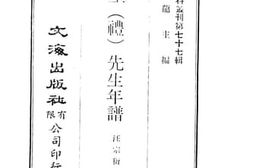 料叢刊第七十七輯
龍主編
(禮)先生年譜
汪宗衍
文海出版社有限公司印行